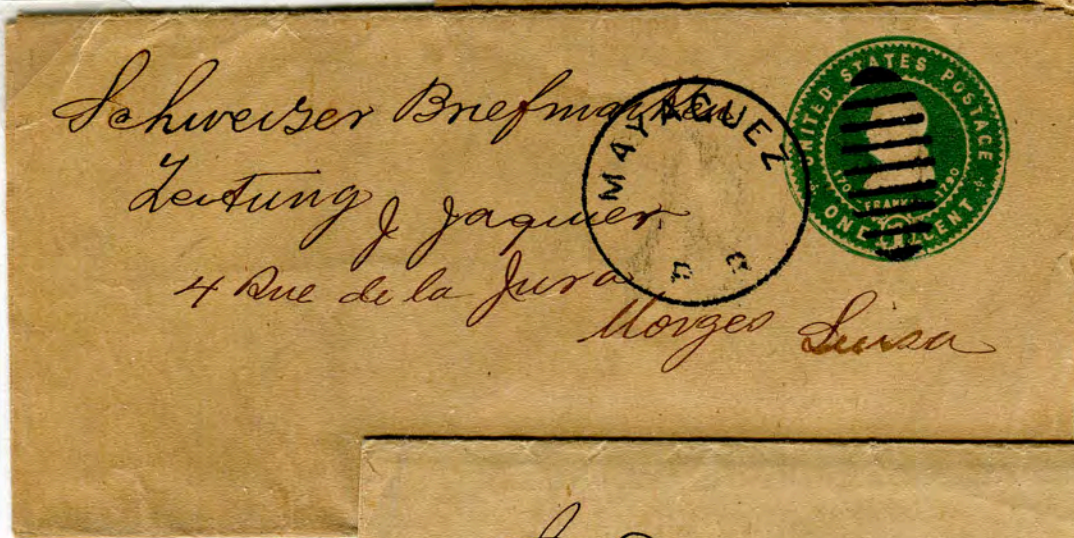 Schweizer Briefmarken
Zeitung J Jaquier
4 Rue de la Jura
Morges Suiza
MAYAGUEZ
P R
UNITED STATES POSTAGE
FRANK
1790
ONE CENT